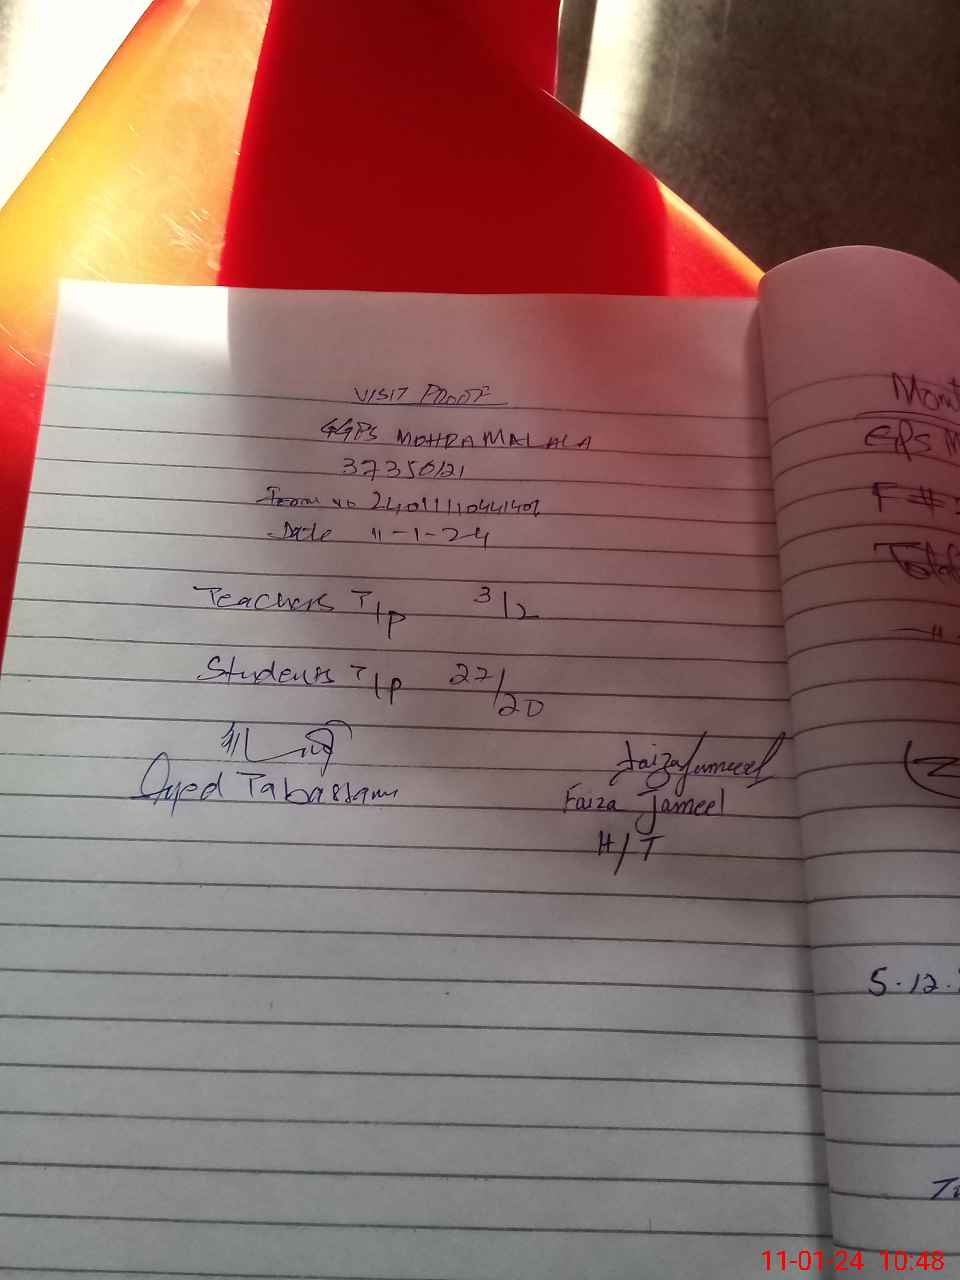 VISIT PROOF
GGPS MOHRA MALALA
37350121
Form no
Date 11-1-24
Teachers T/p 3/2
Students T/p 27/20
Syed Tabassam
Faiza Jameel
Faiza Jameel
H/T
GPS M
F #
Total
5.12.
11-01-24 10:48